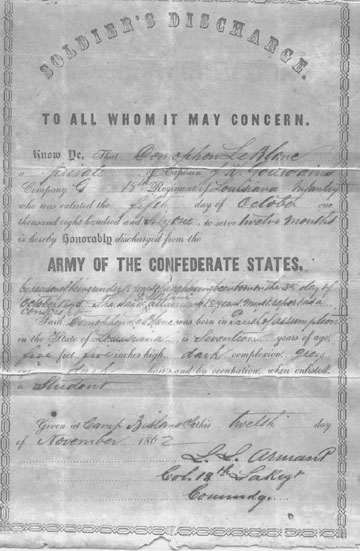 SOLDIER'S DISCHARGE.
TO ALL WHOM IT MAY CONCERN.
Know Ye, That Donophon LeBlanc
a private of Captain J. K. Gourdain's
Company G 18th Regiment of Louisiana Infantry
who was enlisted the fifth day of October one
thousand eight hundred and sixty one to serve twelve months
is hereby Honorably discharged from the
ARMY OF THE CONFEDERATE STATES.
by reason of being under 18 years having been born on the 25 day of
October The said attaining 18 years must report as a
conscript
Said Donophon LeBlanc was born in Parish of Assumption
in the State of Louisiana is Seventeen years of age
five feet five inches high, dark complexion, grey
eyes, hair, and by occupation, when enlisted,
a Student
Given at Camp Bisland this twelfth day
of November 1862
L. L. Armant
Col. 18th La Regt
Commdg.